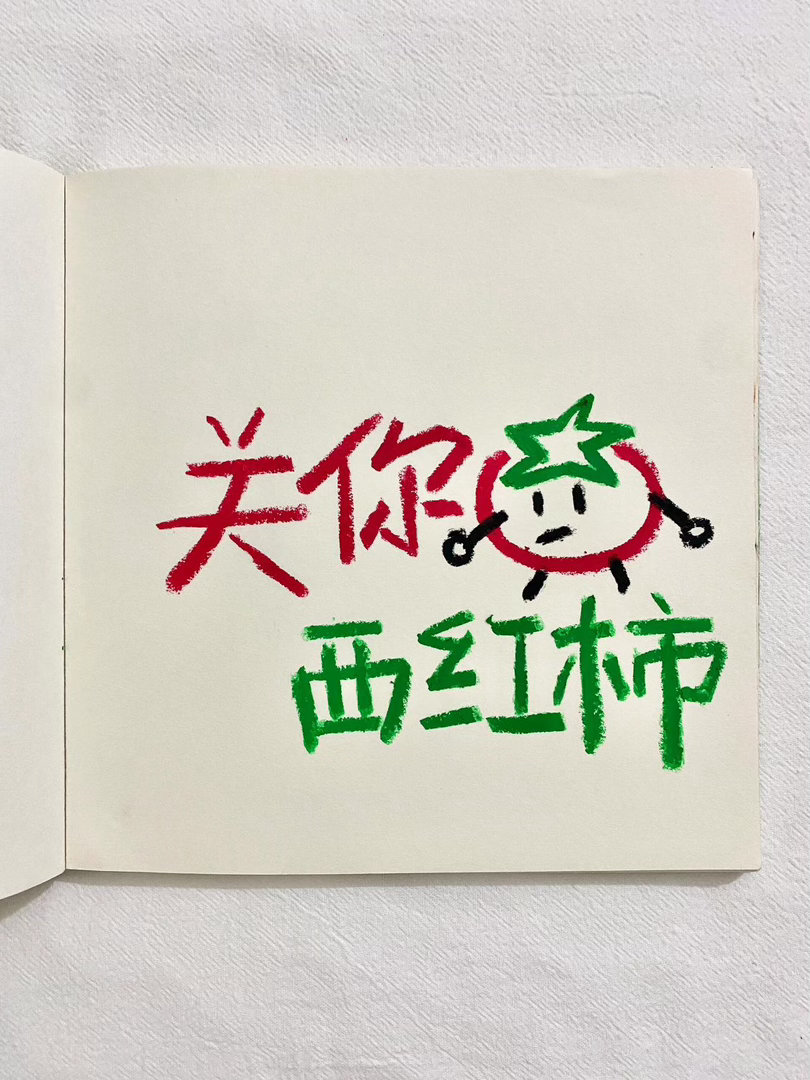 关你
西红柿